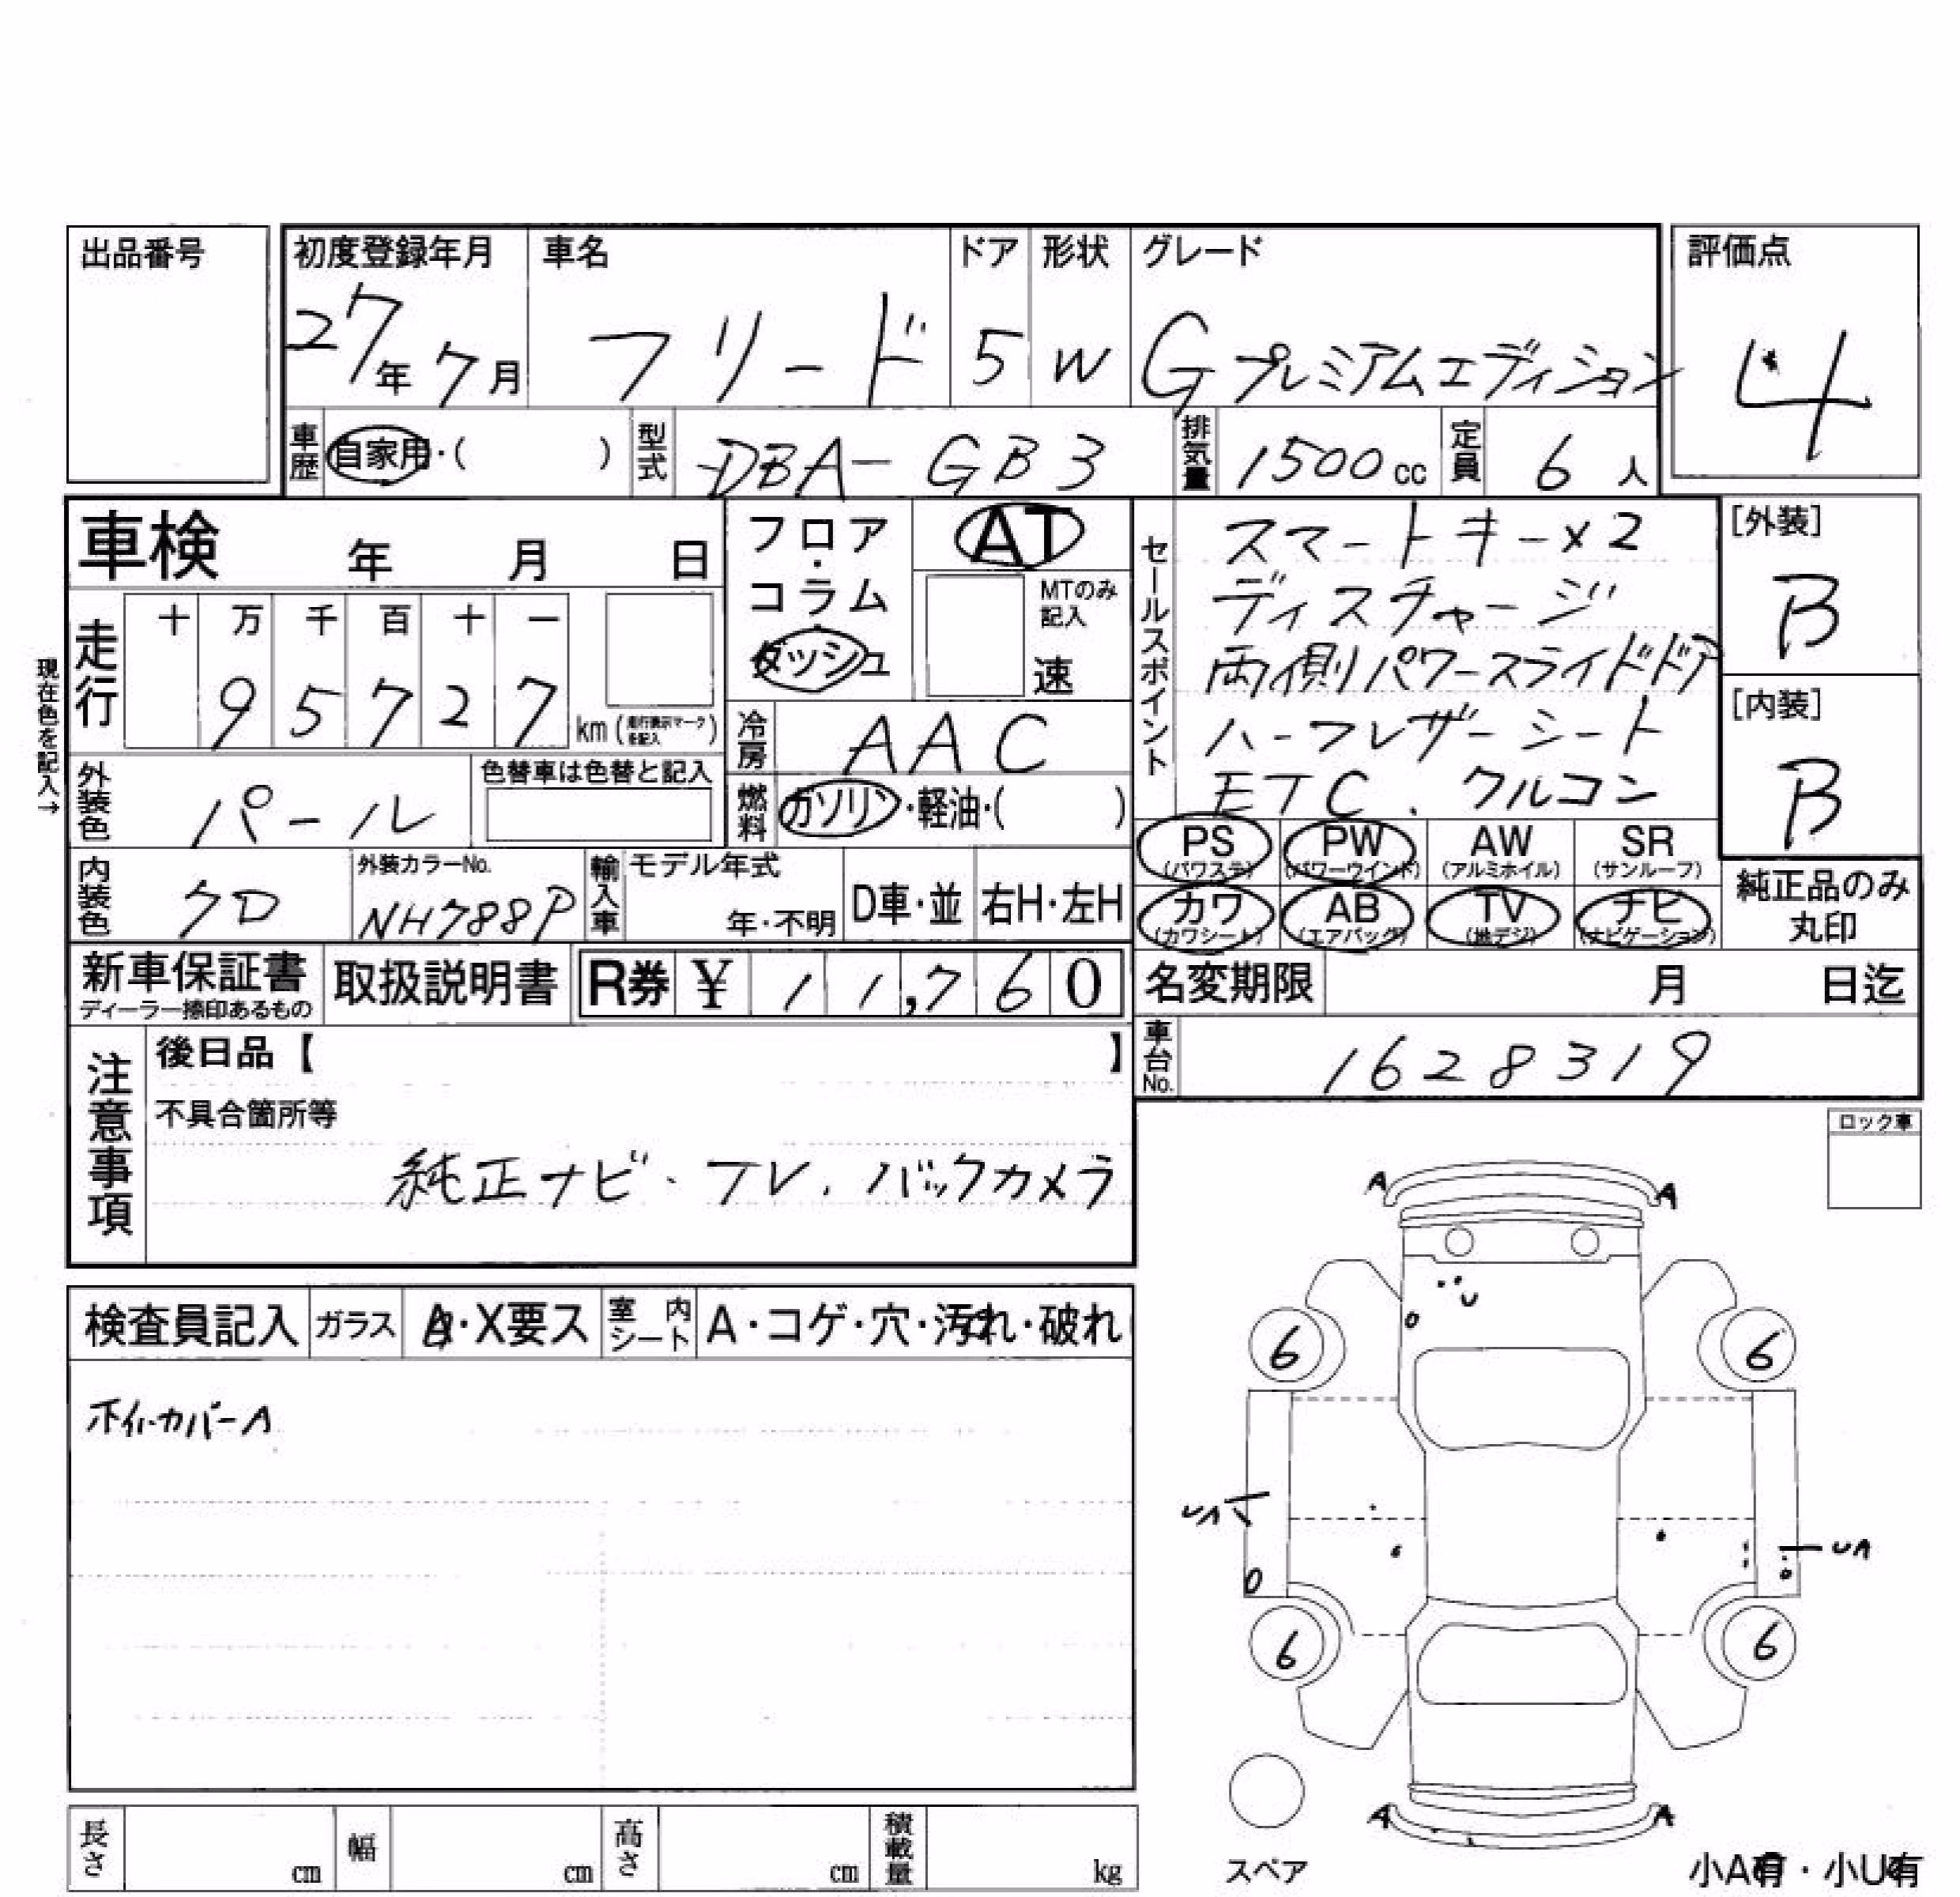 出品番号
初度登録年月 車名 ドア 形状 グレード 評価点
27年7月 フリード 5 W Gプレミアムエディション 4
車歴 自家用・( ) 型式 DBA-GB3 排気量 1500cc 定員 6人
車検 年 月 日
フロア・コラム・ダッシュ AT
MTのみ記入 速
セールスポイント
スマートキー×2
ディスチャージ
両側パワースライドドア
ハーフレザーシート
ETC. クルコン
[外装] B
[内装] B
現在色を記入→
走行 十 万 千 百 十 一
95727 km (走行表示マークを記入)
冷房 AAC
外装色 パール 色替車は色替と記入
燃料 ガソリン・軽油・( )
PS (パワステ) PW (パワーウインド) AW (アルミホイル) SR (サンルーフ)
カワ (カワシート) AB (エアバッグ) TV (地デジ) ナビ (ナビゲーション)
純正品のみ丸印
内装色 クロ 外装カラーNo. NH788P 輸入車 モデル年式 年・不明 D車・並 右H・左H
新車保証書 ディーラー捺印あるもの 取扱説明書 R券 ¥11,760 名変期限 月 日迄
車台No. 1628319
注意事項
後日品【 】
不具合箇所等
純正ナビ・TV.バックカメラ
ロック車
検査員記入 ガラス A・X要ス 室内シート A・コゲ・穴・汚れ・破れ
ホイルカバーA
A A
6 6
UA UA
6 6
A A
スペア
小A有・小U有
長さ cm 幅 cm 高さ cm 積載量 kg